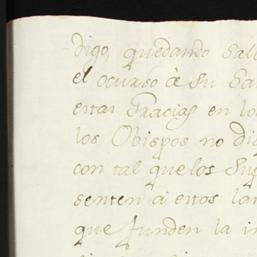 digo, quedando
el ocurso à su
estas Gracias en
los Obispos no
con tal que los
senten à estos
que funden la